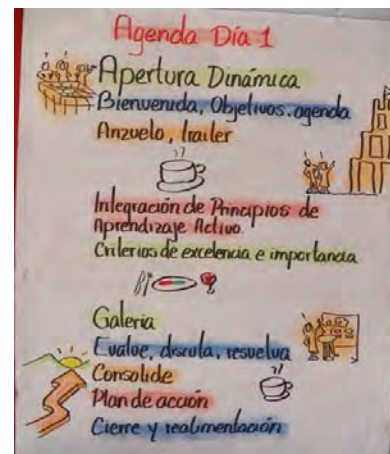 Agenda Día 1
Apertura Dinámica
Bienvenida, Objetivos, agenda
Anzuelo, trailer
Integración de Principios de
Aprendizaje Activo
Criterios de excelencia e importancia
Galería
Evalue, discuta, resuelva
Consolide
Plan de acción
Cierre y realimentación